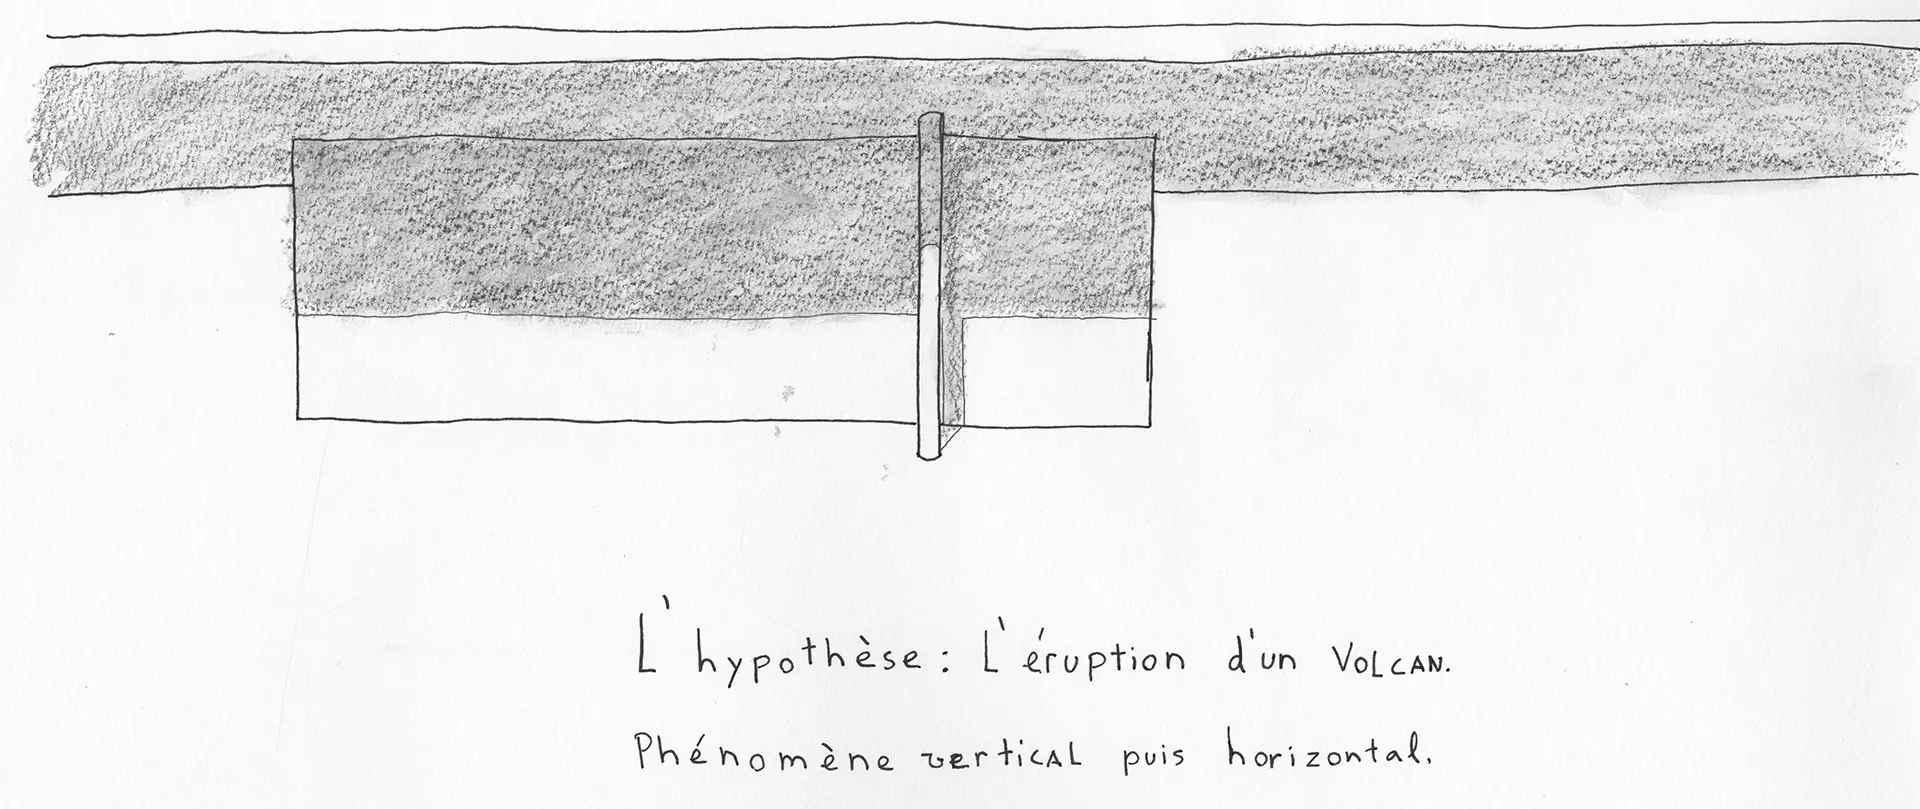 L'hypothèse : L'éruption d'un VOLCAN.
Phénomène vertical puis horizontal.